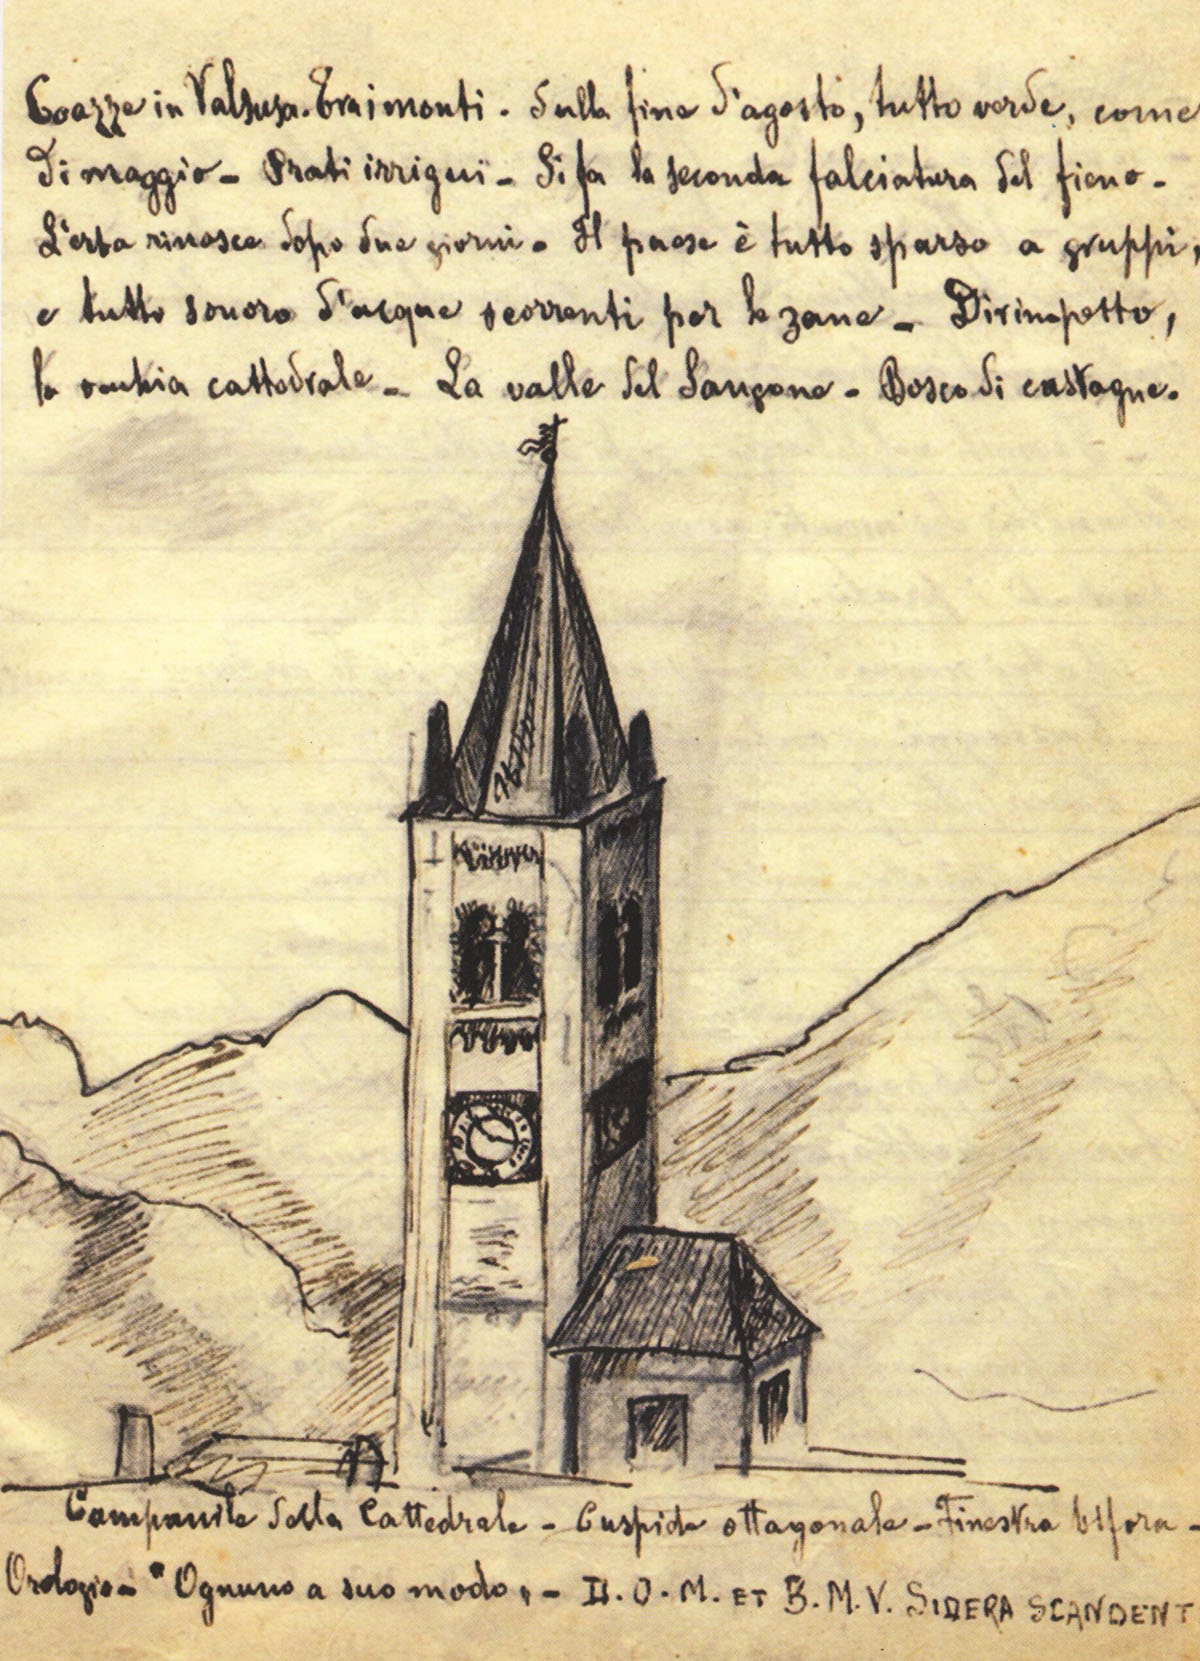 Coazze in Valsusa. Trai monti. Sulla fine d'agosto, tutto verde, come
di maggio - Prati irrigui - Si fa la seconda falciatura del fieno -
L'erba rinasce dopo due giorni. Il paese è tutto sparso a gruppi,
e tutto sonoro d'acque scorrenti per le zane - Dirimpetto,
la vecchia cattedrale - La valle del Sangone - Bosco di castagne.
Campanile della Cattedrale - Cuspide ottagonale - Finestra bifora -
Orologio - "Ognuno a suo modo, - D. O. M. ET B. M. V. SIDERA SCANDENT